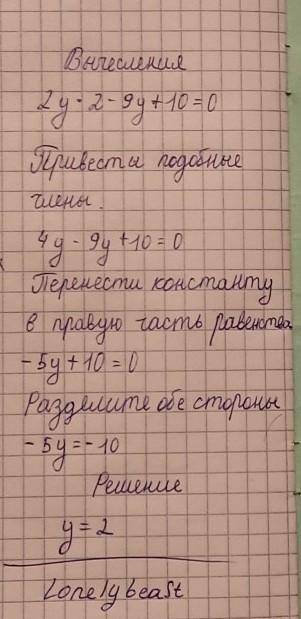 Вычесления
2y · 2 - 9y + 10 = 0
Привесты подобные
члены.
4y - 9y + 10 = 0
Перенести константу
в правую часть равенства
- 5y + 10 = 0
Разделите обе стороны
- 5y = - 10
Решение
y = 2
Lonelybeast